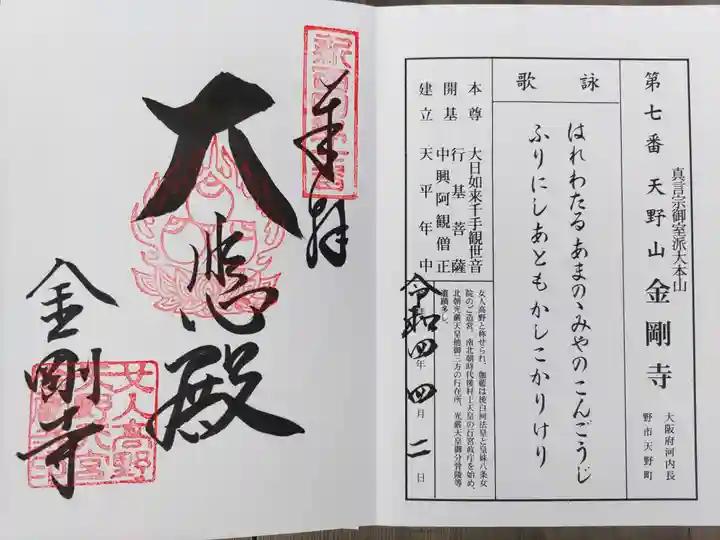 第七番 天野山 金剛寺
真言宗御室派大本山
大阪府河内長
野市天野町
詠歌
はれわたる あまのゝみやの こんごうじ
ふりにしあとも かしこかりけり
本尊 大日如来千手観世音
開基 行基菩薩
中興阿観僧正
建立 天平年中
女人高野と称せられ、伽藍は後白河法皇と皇妹八条女
院のご造営。南北朝時代後村上天皇の行宮政庁を始め、
北朝光厳天皇他御三方の行在所、光厳天皇御分骨陵等
遺蹟多し。
令和四年四月二日
奉拝
大悲殿
金剛寺
女人高野